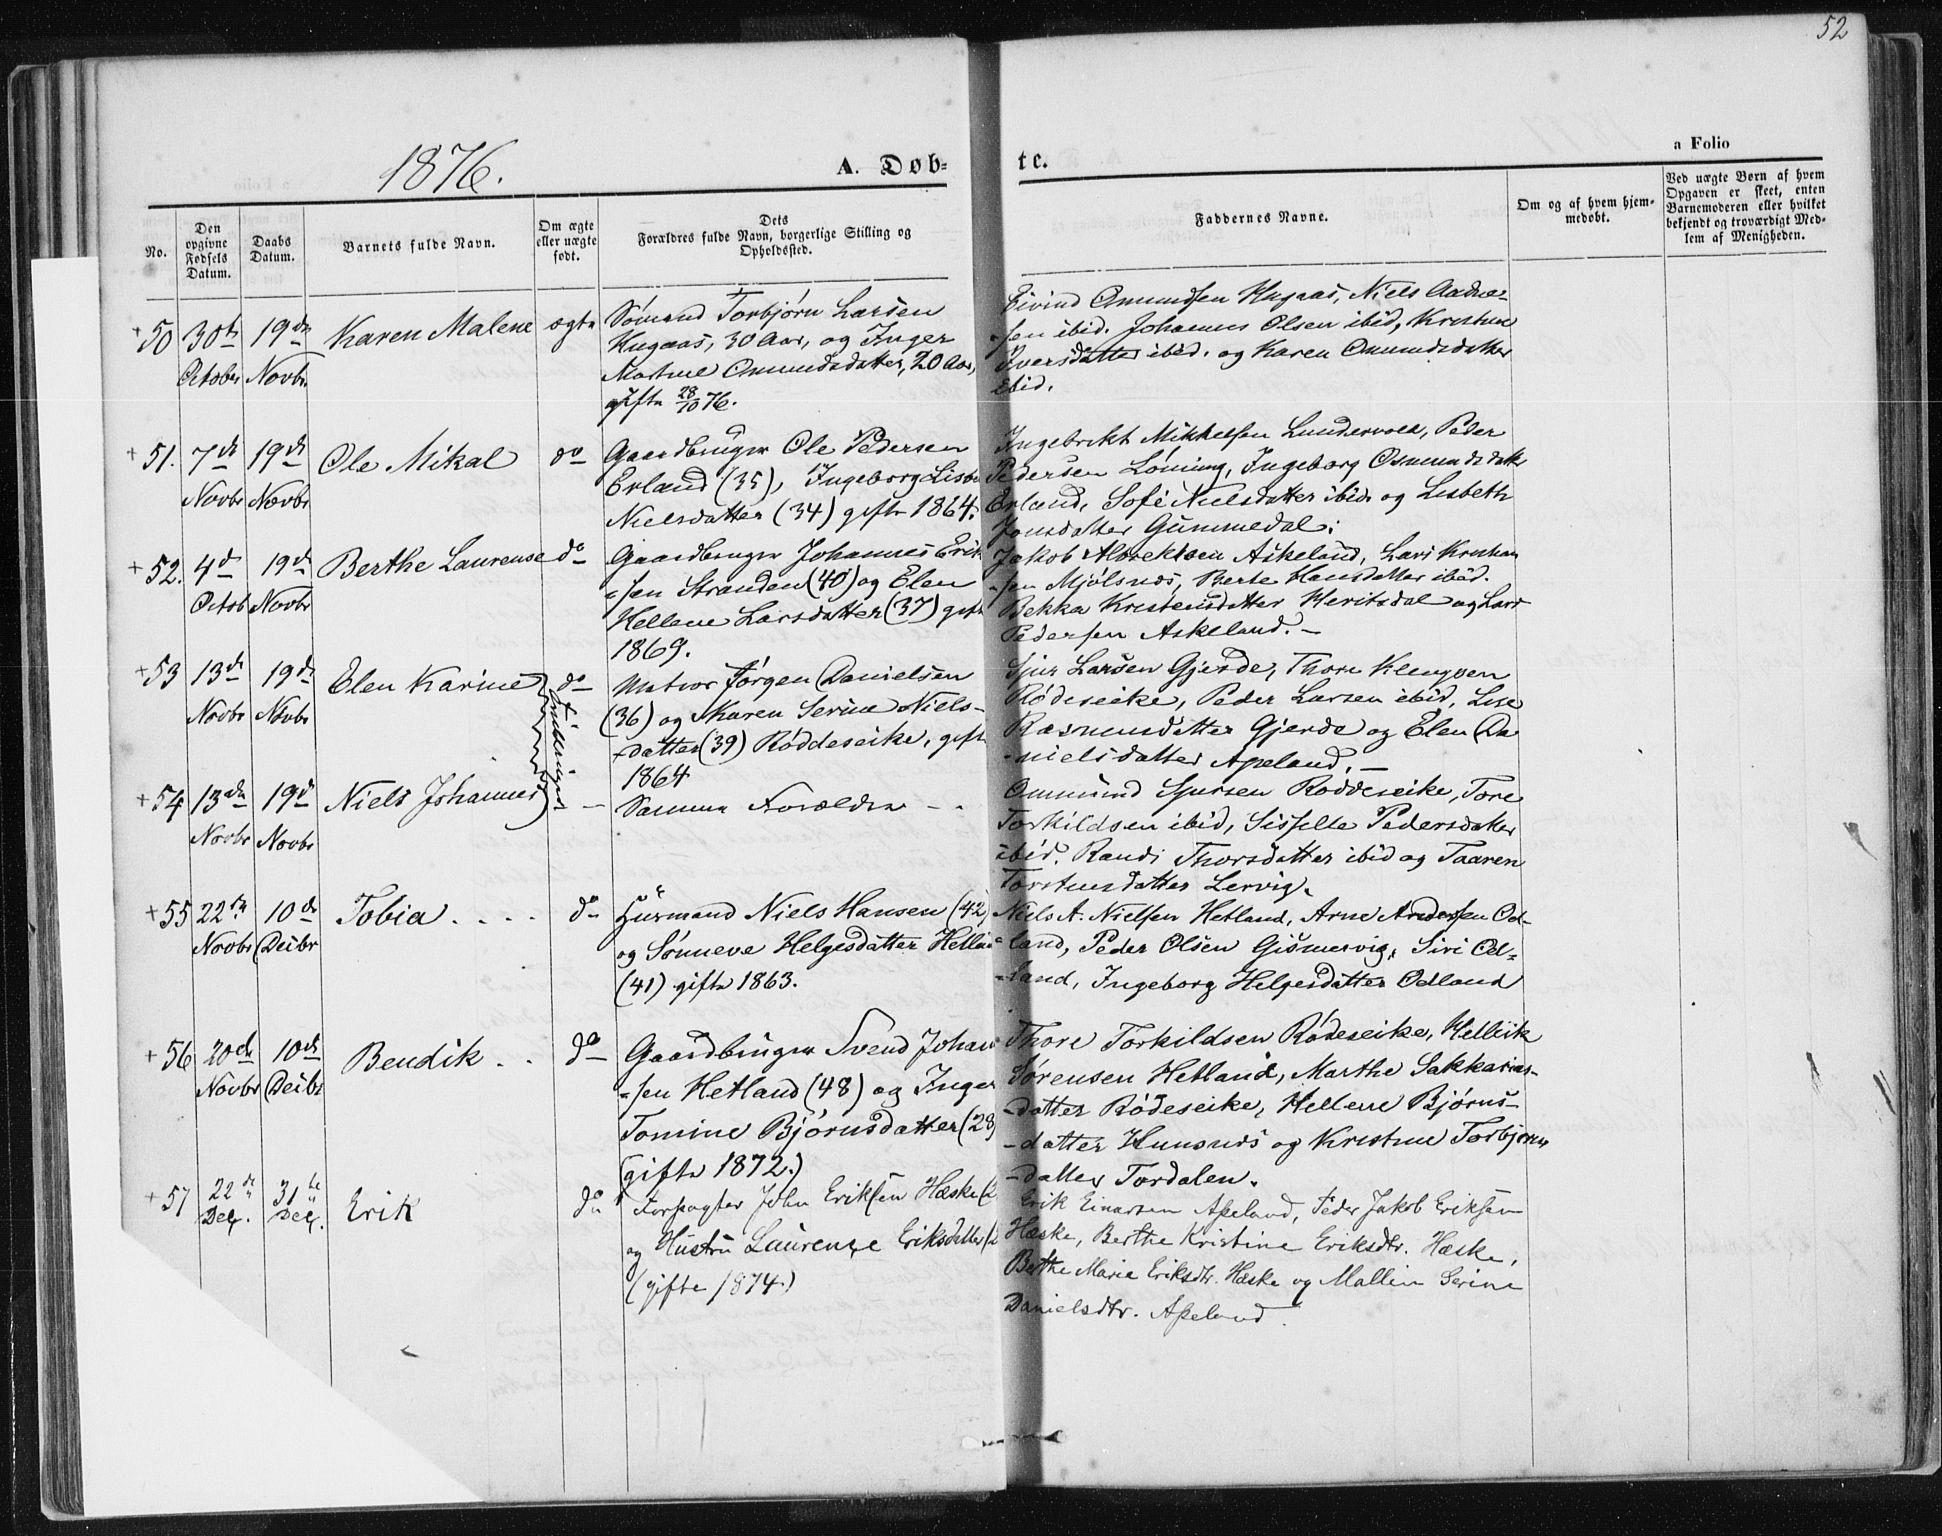 52
1876.
A. Døb-
te.
a Folio
No.
Den opgivne Fødsels Datum.
Daabs Datum.
Barnets fulde Navn.
Om ægte eller uægte født.
Dets Forældres fulde Navn, borgerlige Stilling og Opholdssted.
Faddernes Navne.
Om og af hvem hjemmedøbt.
Ved uægte Børn af hvem Opgaven er skeet, enten Barnemoderen eller hvilket bekjendt og troværdigt Medlem af Menigheden.
+ 50 30te October 19de Novbr Karen Malene ægte
Sømand Torbjørn Larsen
Hugaas, 30 Aar, og Inger
Martine Omundsdatter, 20 Aar,
gifte 28/10 76.
Eivind Omundsen Hugaas, Niels Aadne-
-sen ibid. Johannes Olsen ibid, Kristine
Iversdatter ibid. og Karen Omundsdatter
ibid.
+ 51. 7de Novbr 19de Novbr Ole Mikal do
Gaardbruger Ole Pedersen
Erland (35), Ingeborg Lisbe
Nielsdatter (34) gifte 1864.
Ingebrikt Mikkelsen Lundervold, Peder
Pedersen Løning, Ingeborg Osmundsdatter
Erland, Sofie Nielsdatter ibid. og Lisbeth
Jonsdatter Gummedal.
+ 52. 4de Octob 19de Novbr Berthe Laurense do
Gaardbruger Johannes Erik
-sen Stranden (40) og Elen
Hellene Larsdatter (37) gift
1869.
Jakob Albrektsen Askeland, Lars Kristian
-sen Mjølsnes, Berte Hansdatter ibid.
Bekka Kristensdatter Heritsdal og Lars
Pedersen Askeland. -
+ 53 13de Novbr 19de Novbr Elen Karine do
Tvillinger
Matros Jørgen Danielsen
(36) og Karen Serine Niels-
datter (39) Røddeseike, gift
1864
Sjur Larsen Gjerde, Thore
Rødeseike, Peder Larsen ibid, Lise
Rasmusdatter Gjerde og Elen Da
-nielsdatter Apeland. -
+ 54 13de Novbr 19de Novbr Niels Johannes -
Samme Forældre - -
Ommund Sjursen Røddeseike, Tore
Torkildsen ibid, Sisselle Pedersdatter
ibid. Randi Thorsdatter ibid og Taaren
Torstensdatter Lervig.
+ 55 22de Novbr 10de Decbr Tobia . . . . do
Husmand Niels Hansen (42)
og Sønneve Helgesdatter Hetland
(41) gifte 1863.
Niels A. Nielsen Hetland, Arne Andersen Od-
land, Peder Olsen Gismervig, Siri Od-
-land, Ingeborg Helgesdatter Odland
+ 56 20de Novbr 10de Decbr Bendik . . do
Gaardbruger Svend Johan
-sen Hetland (48) og Inger
Tomine Bjørnsdatter (28)
(gifte 1872.)
Thore Torkildsen Rødeseike, Hellvik
Sørensen Hetland, Marthe Sakkarias-
-datter Rødeseike, Hellene Bjørns-
-datter Hunsnes og Kristine Torbjørns
-datter Tordalen.
+ 57 22de Dec. 31te Dec. Erik do
Forpagter John Eriksen Hæske (2
og Hustru Laurense Eriksdatter (2
(gifte 1874.)
Erik Einarsen Apeland, Peder Jakob Eriksen
Hæske, Berthe Kristine Eriksdtr. Hæske,
Berthe Marie Eriksdtr. Hæske og Mallin Serine
Danielsdtr. Apeland.